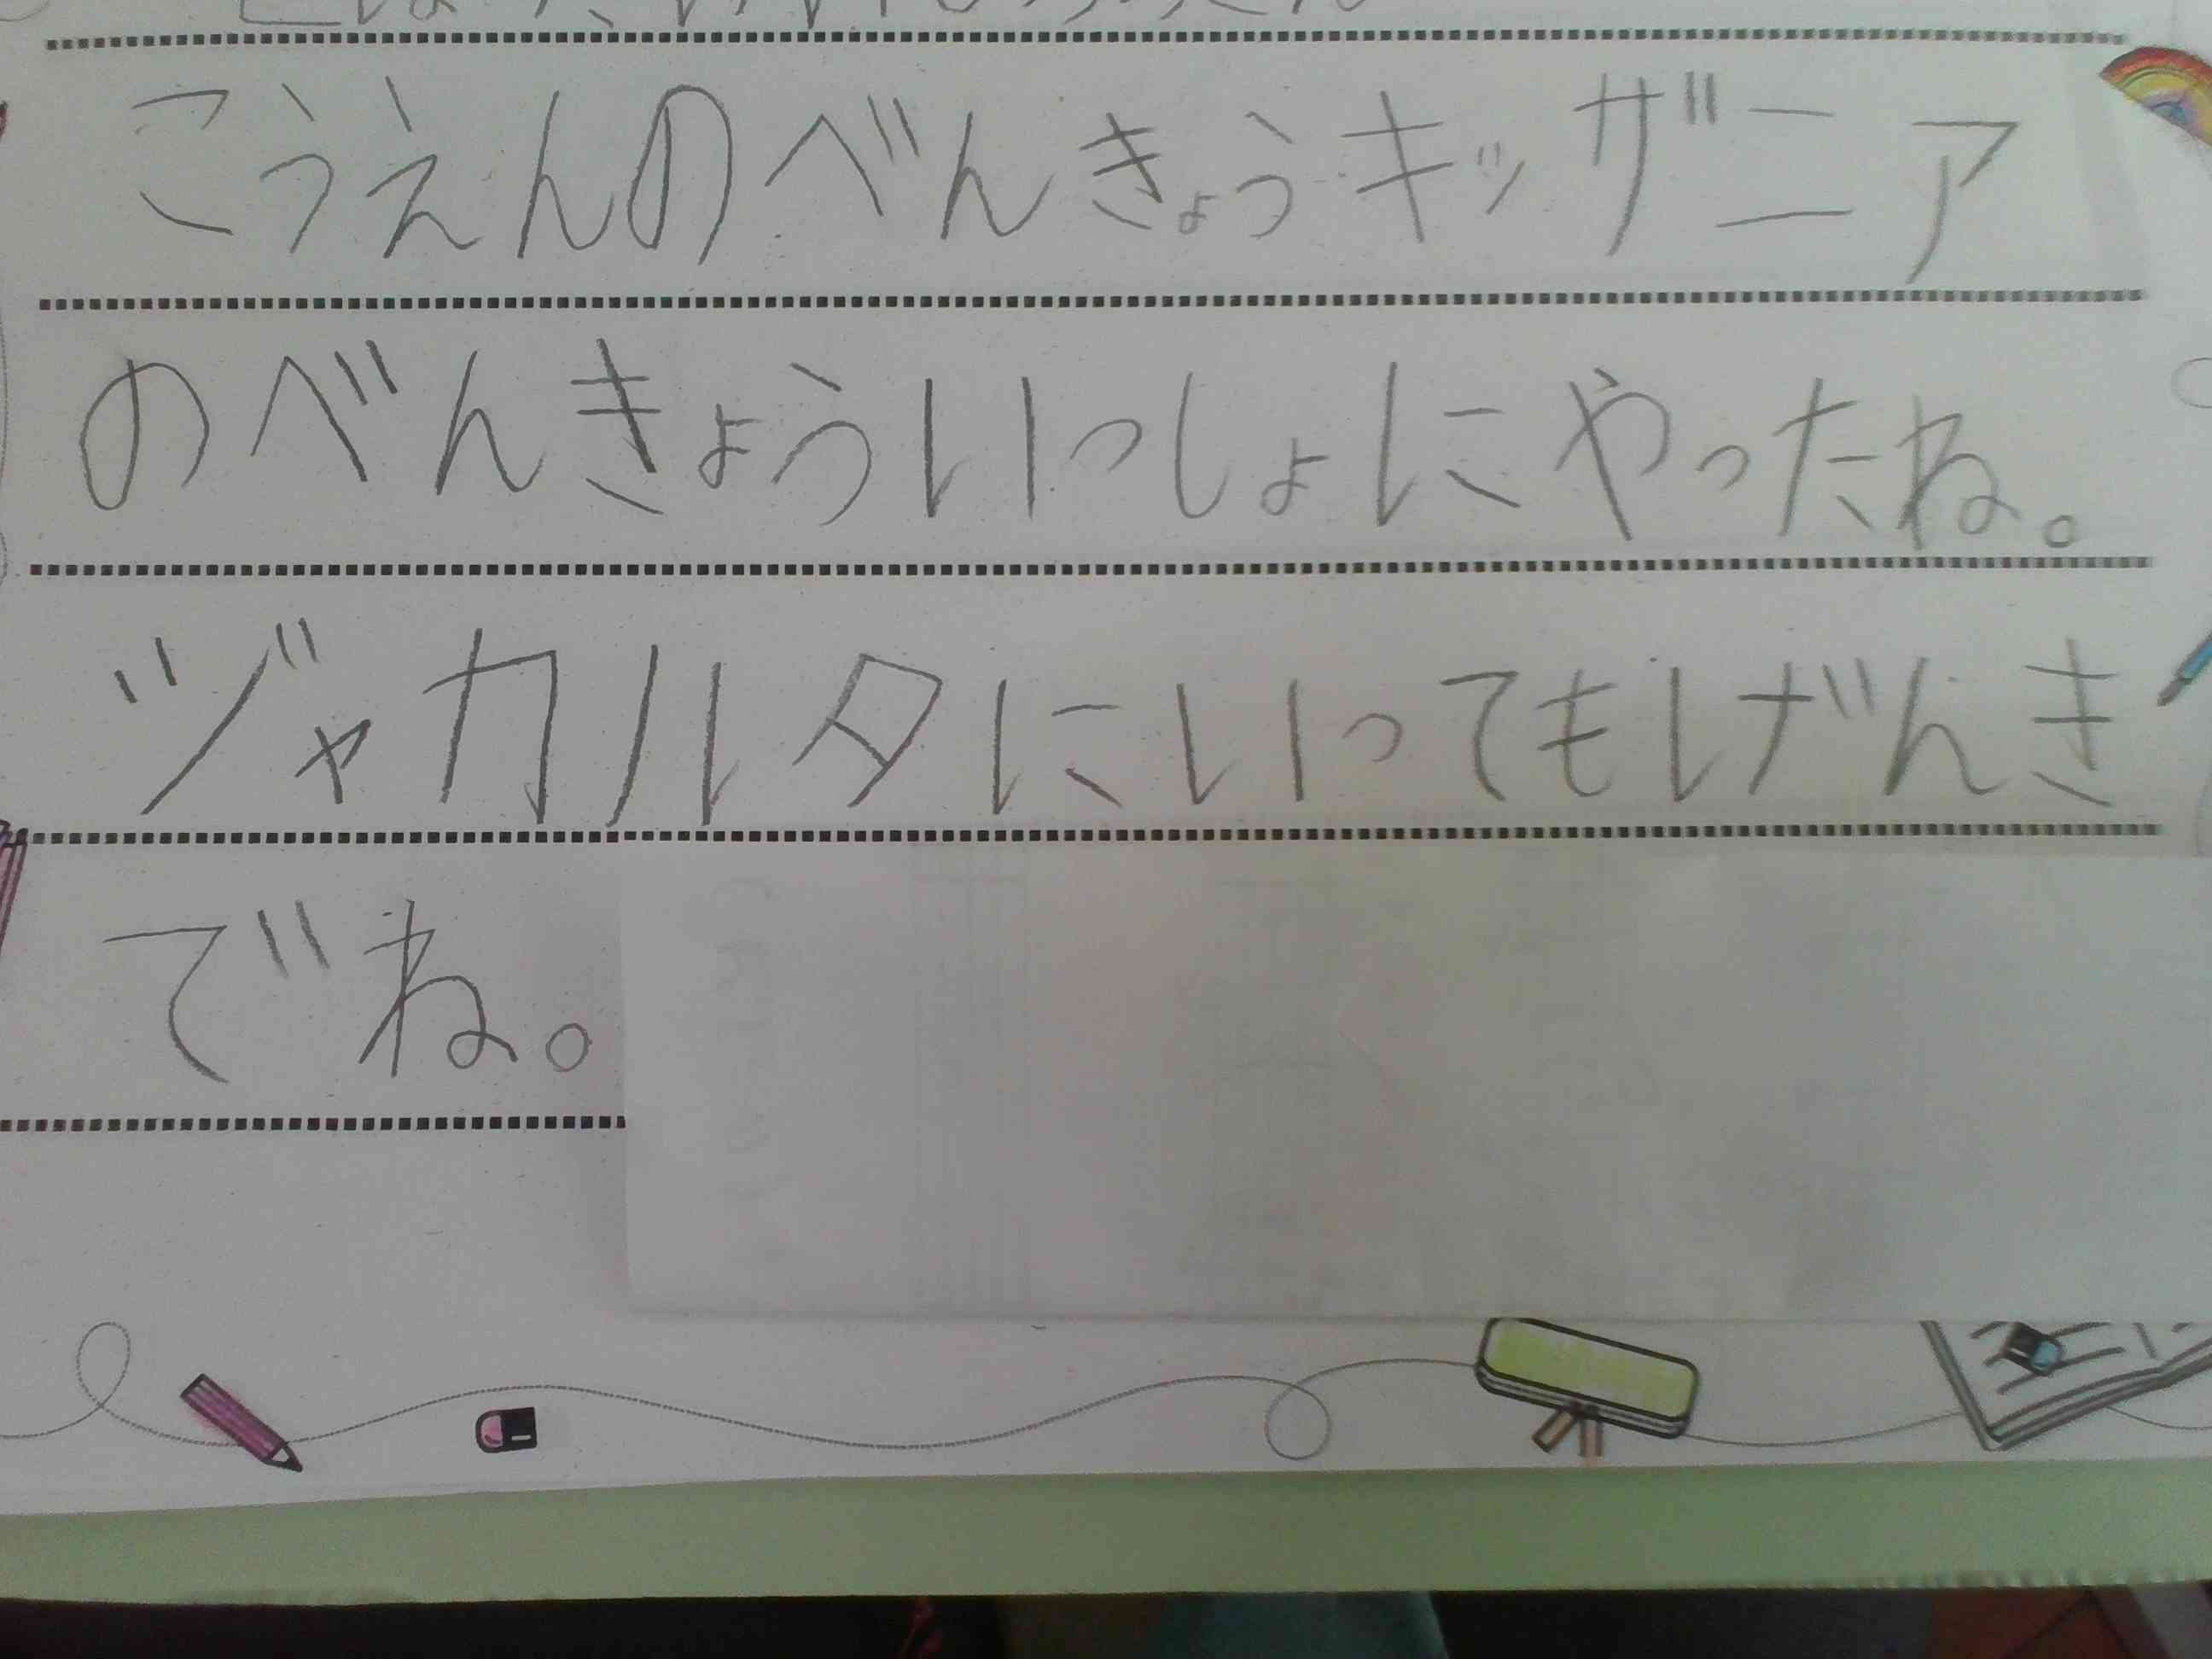 こうえんのべんきょうキッザニア
のべんきょういっしょにやったね。
ジャカルタにいってもげんき
でね。